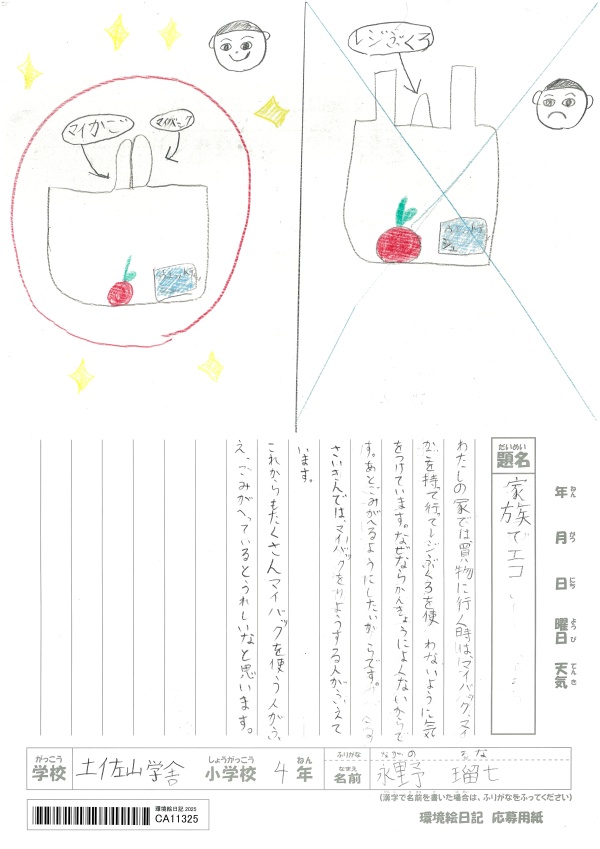 レジぶくろ
マイかご
マイバック
ティッシュ
年 ねん
月 がつ
日 にち
曜日 ようび
天気 てんき
題名 だいめい
家族でエコ
わたしの家では買い物に行く時は、マイバッグ、マイ
かごを持って行ってレジぶくろを使わないように気
をつけています。なぜならかんきょうによくないからで
す。あとごみがへるようにしたいからです。
さいきんでは、マイバックをりようする人がふえて
います。
これからもたくさんマイバックを使う人がふ
え、ごみがへっているとうれしいなと思います。
がっこう 学校
土佐山学舎
しょうがっこう 小学校
4
ねん 年
ふりがな
ながの るな
なまえ 名前
永野 瑠七
(漢字で名前を書いた場合は、ふりがなをふってください)
環境絵日記 2025
CA11325
環境絵日記 応募用紙